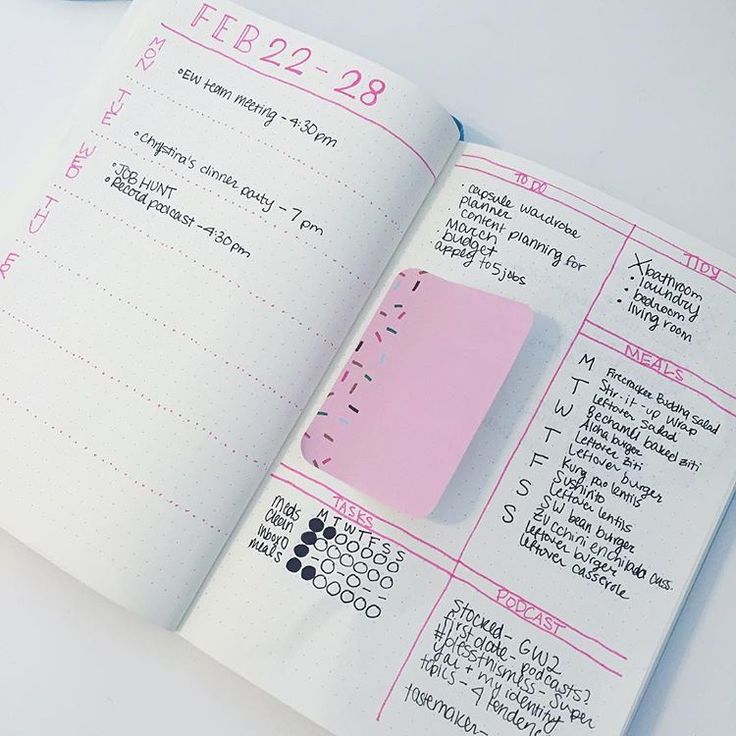 FEB 22-28
MON
•EW team meeting - 4:30pm
TUE
•Christina's dinner party - 7 pm
WED
•JOB HUNT
•Record podcast - 4:30pm
THU
FR
TO DO
•capsule wardrobe
planner
content planning for
March
•budget
•apply to 5 jobs
TIDY
X bathroom
•laundry
•bedroom
•living room
MEALS
M Firecracker Buddha salad
Stir-it-up wrap
T Leftover salad
Bechamel baked ziti
W Aloha burger
Leftover ziti
T Leftover burger
Kung pao lentils
F Sushinito
Leftover lentils
S SW bean burger
Zucchini enchilada cass.
S leftover burger
leftover casserole
TASKS
M T W T F S S
Meds
Clean
inbox 0
meals
PODCAST
Stocked - GW2
first date - podcasts?
#blessthismess - Super
gai + my identity
topics - 4 tendenc
tastemaker -